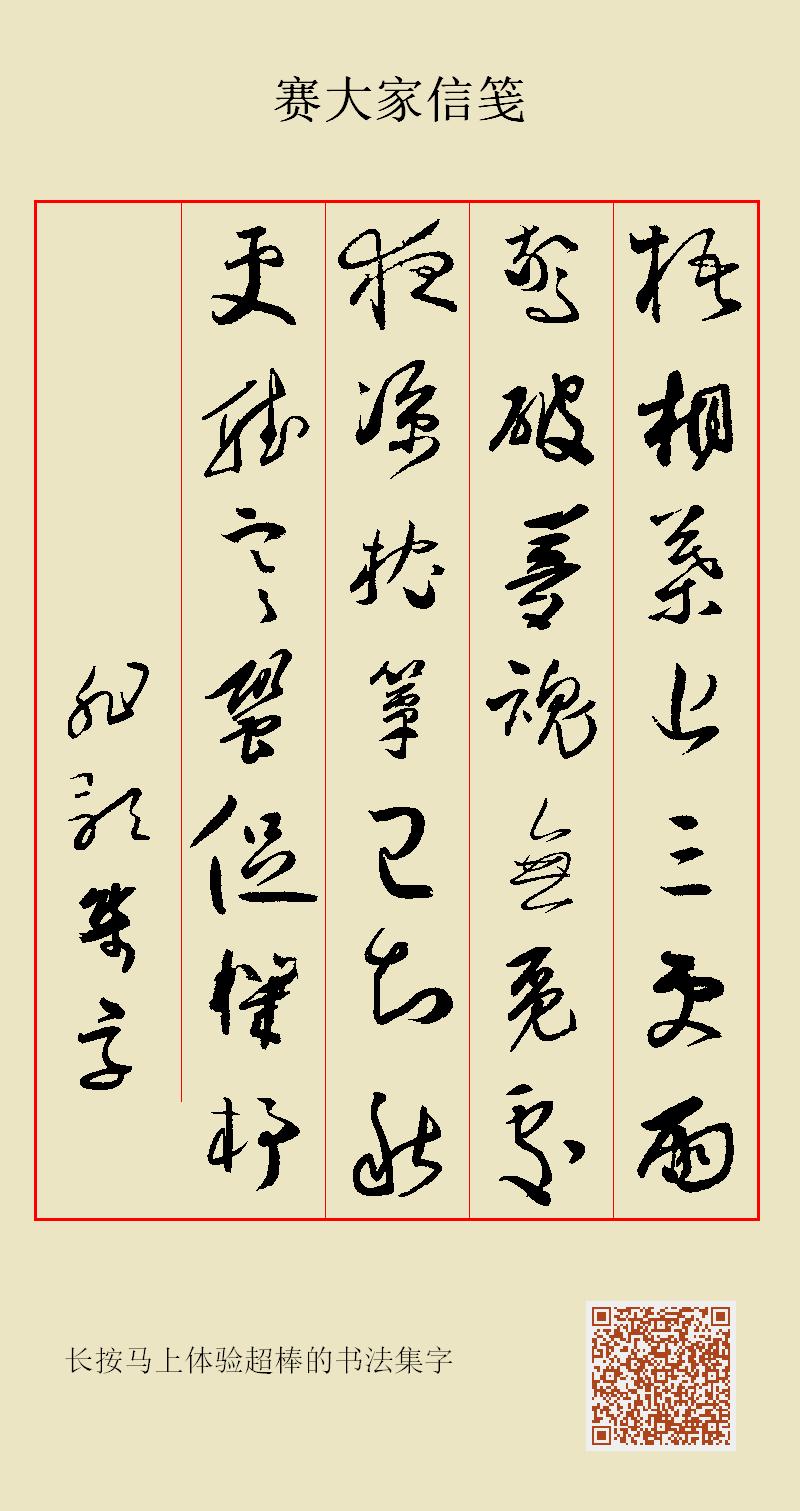 赛大家信笺
梧桐葉上三更雨
驚破夢魂無覓處
夜涼枕簟已知秋
更聽寒蛩促機杼
集字
长按马上体验超棒的书法集字